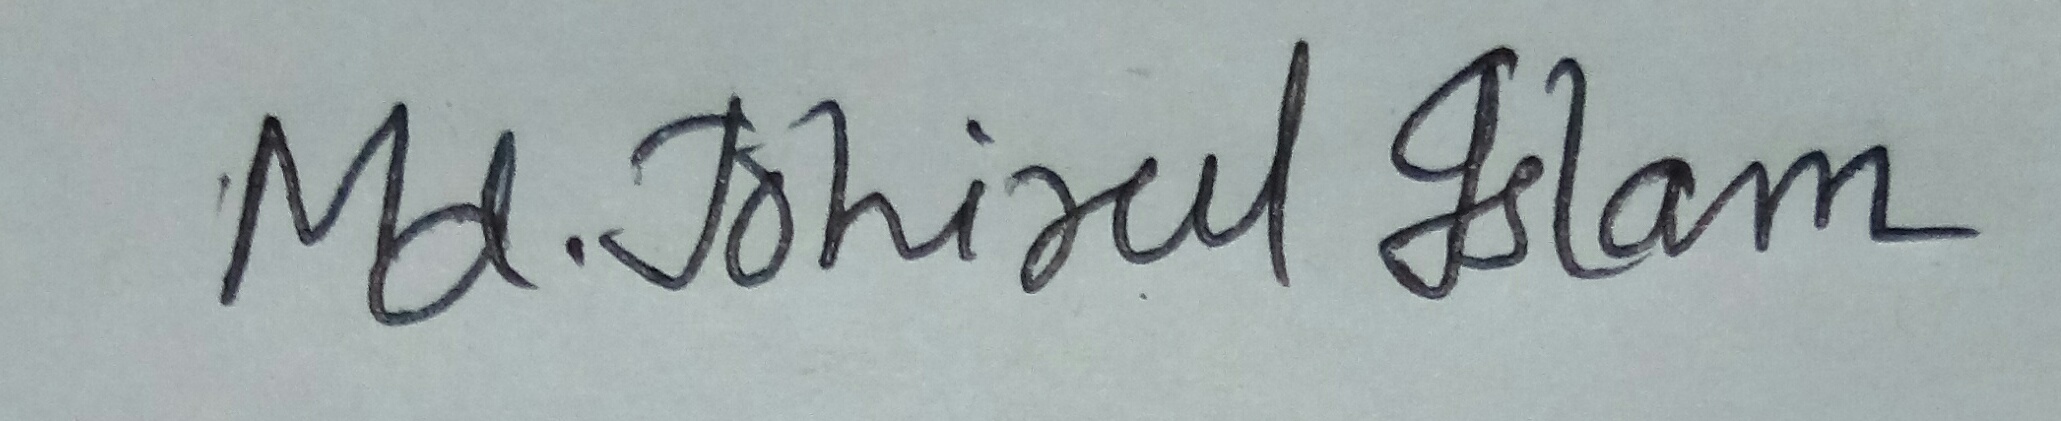 Md. Johirul Islam